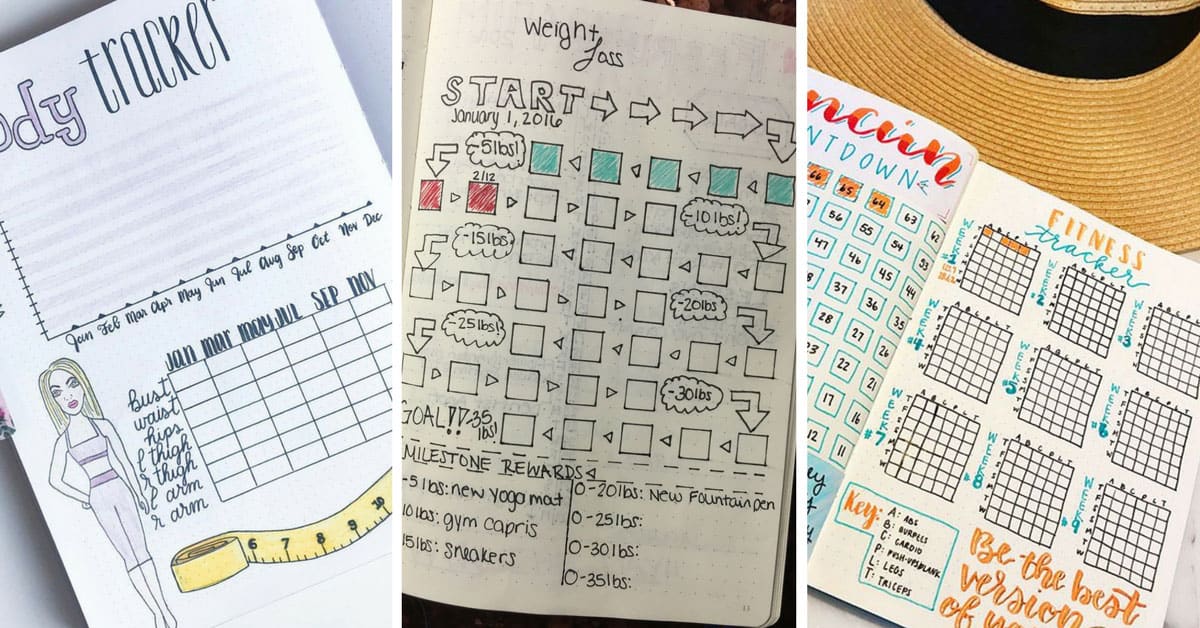 ody tracker
Jan Feb Mar Apr May Jun Jul Aug Sep Oct Nov Dec
Jan Mar May Jul Sep Nov
bust
waist
hips
l thigh
r thigh
l arm
r arm
6 7 8 9 10
Weight
Loss
START
January 1, 2016
-5lbs!
2/12
-10lbs!
-15lbs!
-20lbs!
-25lbs!
-30lbs!
GOAL!! -35
lbs!
MILESTONE REWARDS
-5lbs: new yoga mat
10lbs: gym capris
15lbs: sneakers
0-20lbs: New Fountain pen
0-25lbs:
0-30lbs:
0-35lbs:
ncun
NTDOWN
66 65 64 63 62
56 55 54 53
47 46 45 44
37 36 35
28 27 26
23 22 21
17 16
12 11
FITNESS
tracker
WEEK #1
WEEK #2
WEEK #3
WEEK #4
WEEK #5
WEEK #6
WEEK #7
WEEK #8
WEEK #9
A B C P L T
Key:
A: ABS
B: BURPEES
C: CARDIO
P: PUSH-UPS/PLANK
L: LEGS
T: TRICEPS
Be the best
version
of